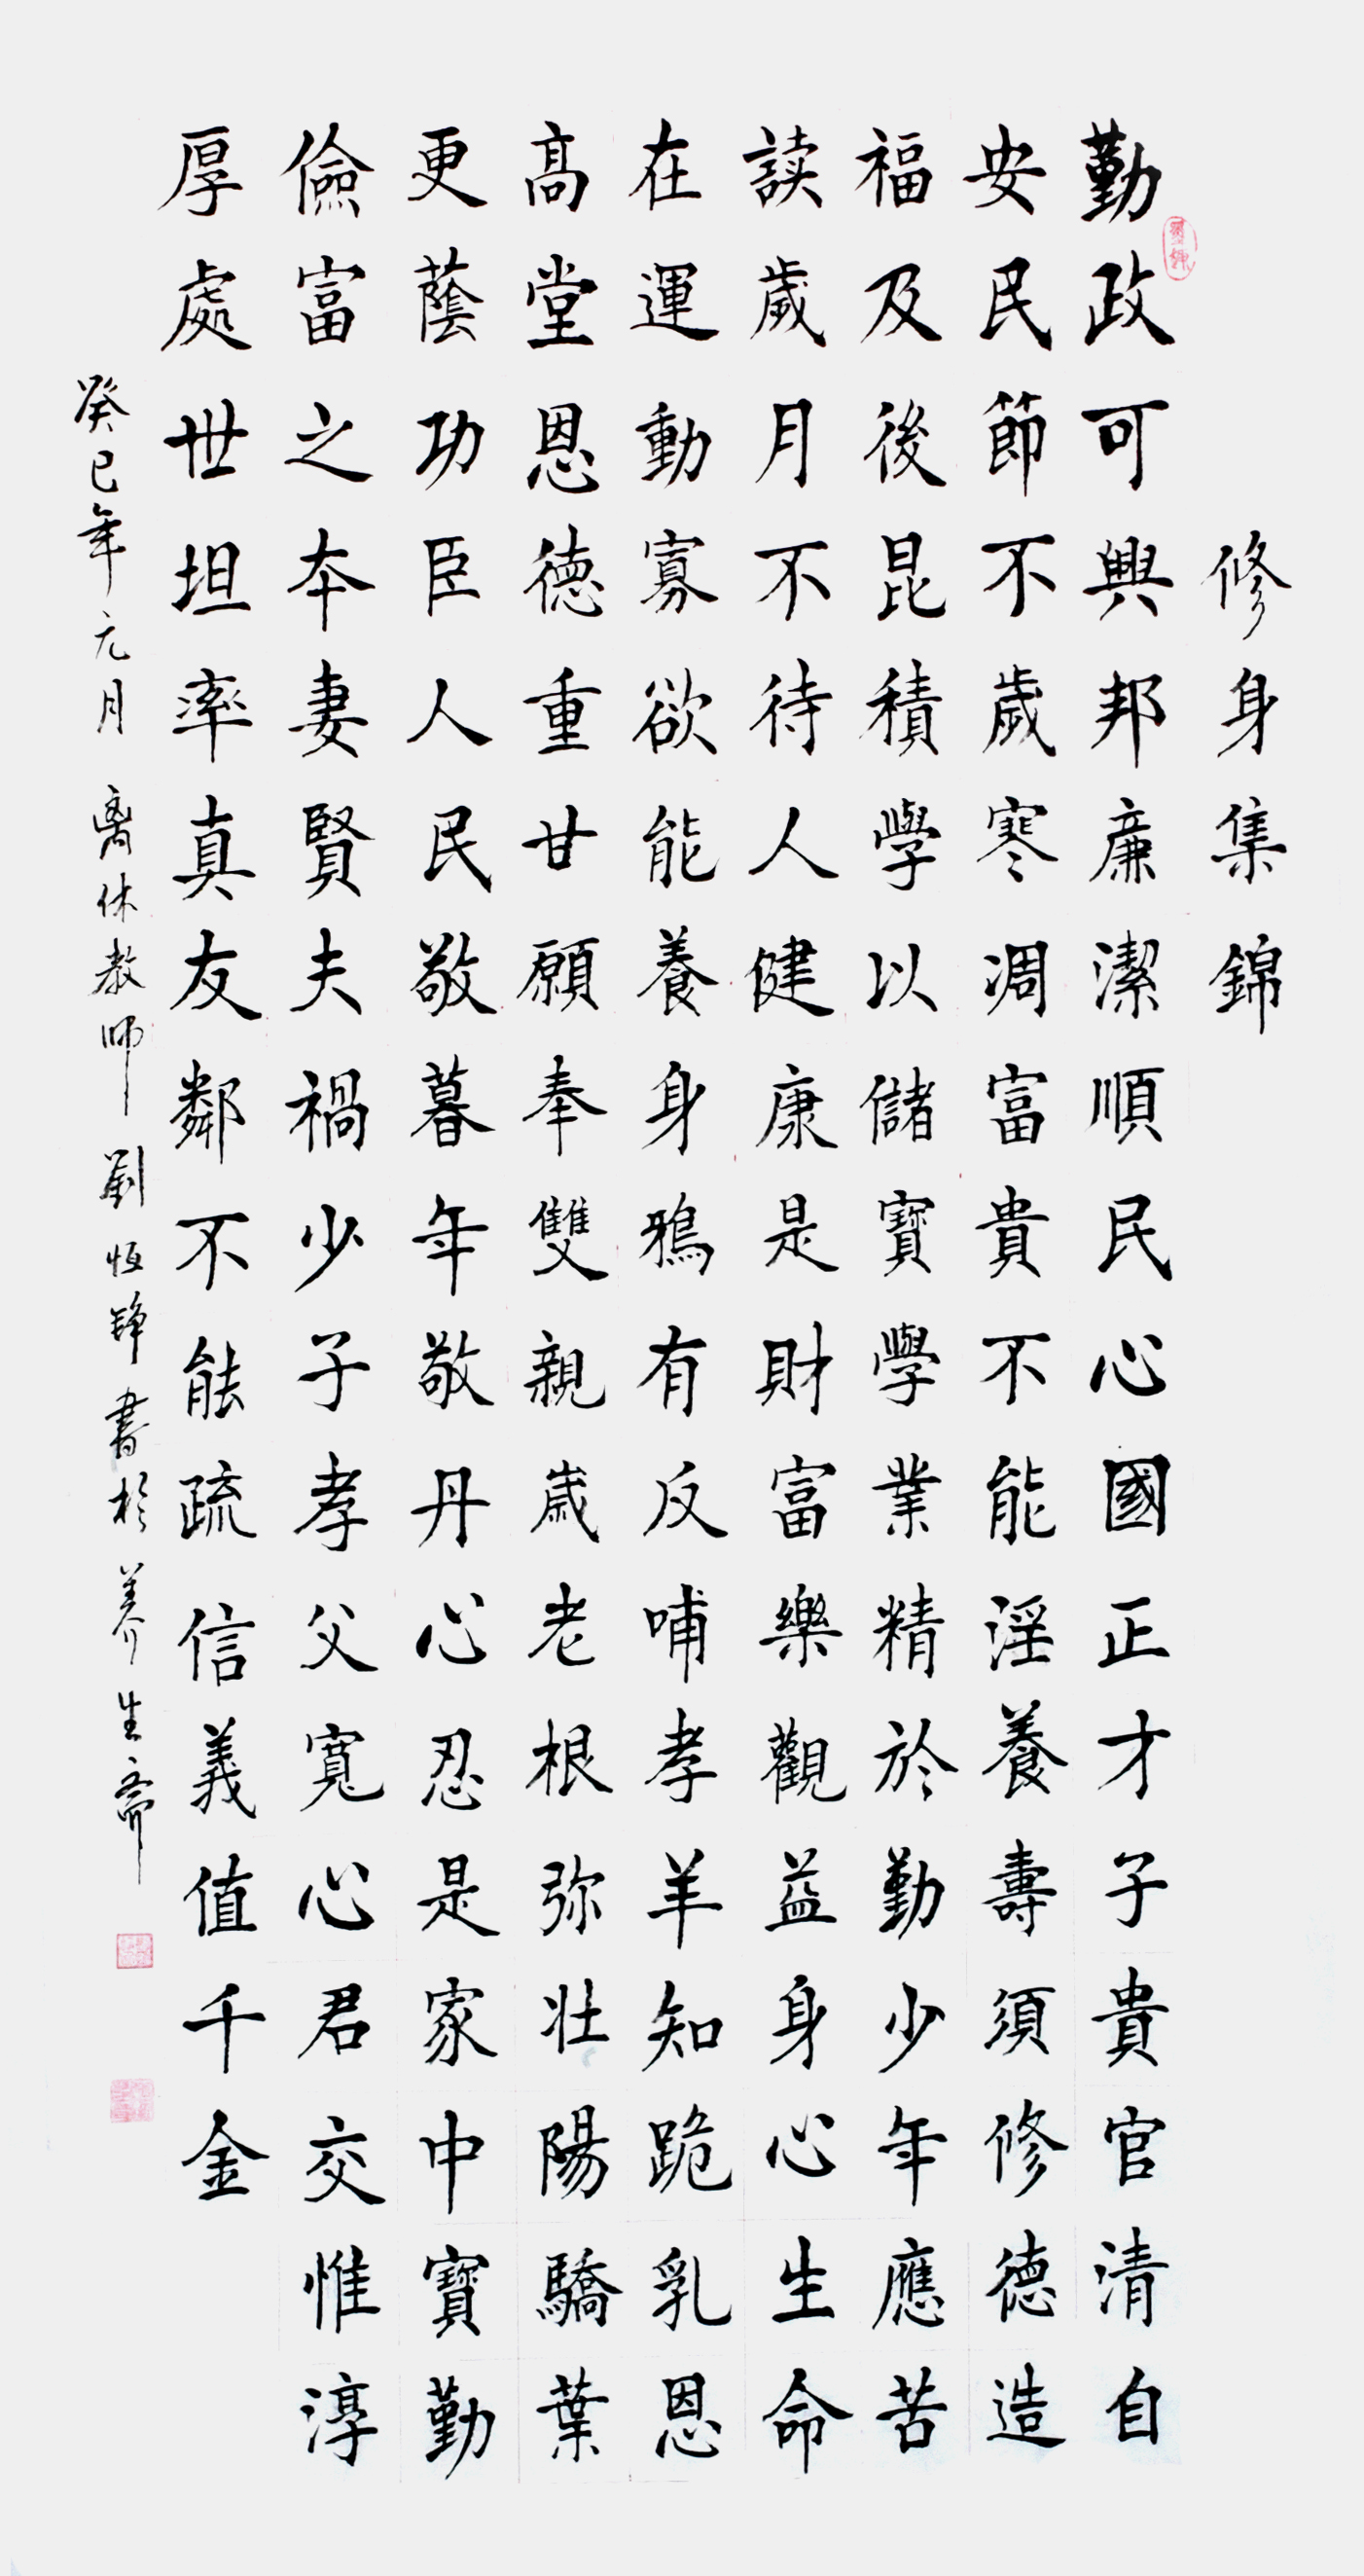 修身集錦
勤政可興邦廉潔順民心國正才子貴官清自
安民節不歲寒凋富貴不能淫養壽須修德造
福及後昆積學以儲寶學業精於勤少年應苦
读歲月不待人健康是財富樂觀益身心生命
在運動寡欲能養身鴉有反哺孝羊知跪乳恩
高堂恩德重甘願奉雙親歲老根弥壮陽驕葉
更蔭功臣人民敬暮年敬丹心忍是家中寶勤
儉富之本妻賢夫禍少子孝父寬心君交惟淳
厚處世坦率真友鄰不能疏信義值千金
癸巳年元月 离休教師 劉恒錚 書於养生斋